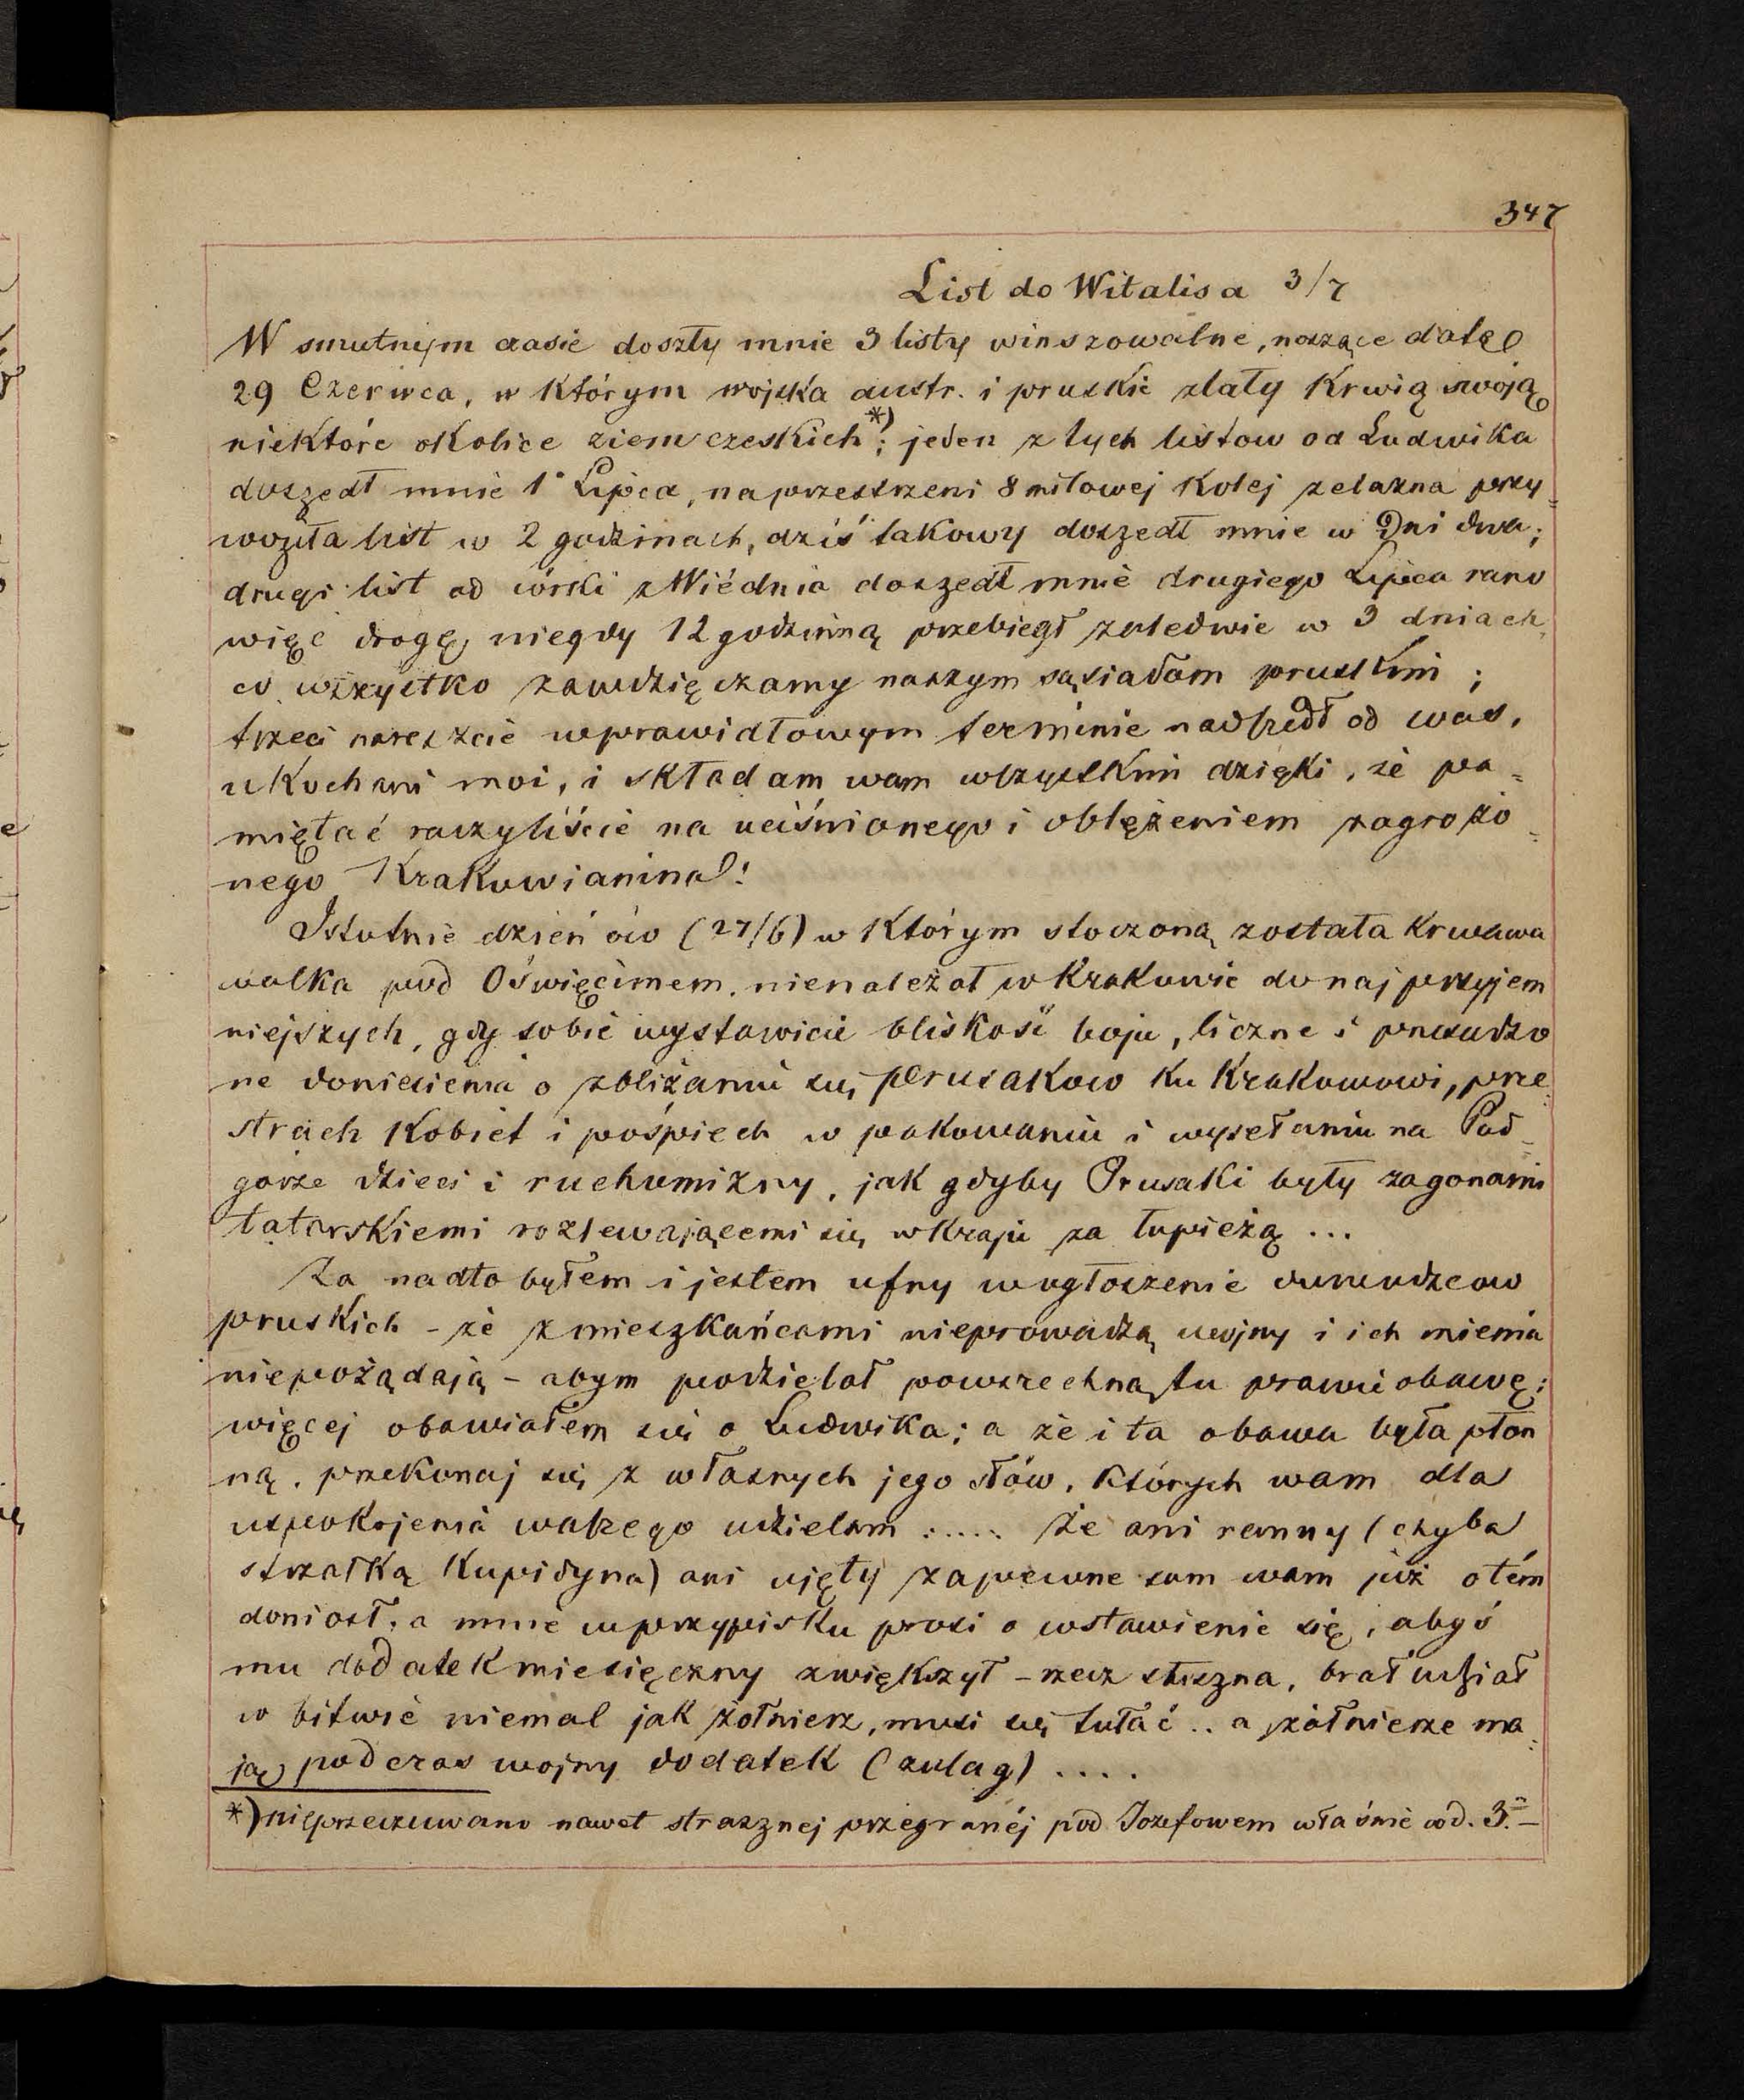 347
List do Witalisa 3/7
W smutnym czasie doszły mnie 3 listy winszowalne, noszące datę
29 Czerwca, w którym wojska austr. i pruskie zlały krwią swoją
niektóre okolice ziem czeskich *); jeden z tych listow od Ludwika
doszedł mnie 1° Lipca, na przestrzeni 8 milowej kolej zelazna przy-
woziła list w 2 godzinach, dziś takowy doszedł mnie w Dni dwa;
drugi list od córki z Wiédnia doszedł mnie drugiego Lipca rano
więc drogę niegdy 12 godzinną przebiegł zaledwie w 3 dniach,
co wszystko zawdzięczamy naszym sąsiadom pruskim;
trzeci nareszcie w prawidłowym terminie nadszedł od was,
ukochani moi, i składam wam wszystkim dzięki, że pa-
miętać raczyliście na uciśnionego i oblężeniem zagrożo-
nego Krakowianina!
Istotnie dzień ów (27/6) w którym stoczoną została krwawa
walka pod Oświęcimem, nienależał w Krakowie do najprzyjem
niejszych, gdy sobie wystawicie bliskość boju, liczne i przesadzo
ne doniesienia o zbliżaniu się Prusakow ku Krakowowi, prze-
strach kobiet i pośpiech w pakowaniu i wysełaniu na Pod-
górze dzieci i ruchomizny, jak gdyby Prusaki były zagonami
tatarskiemi rozlewającemi się w kraju za łupieżą ...
Za nadto byłem i jestem ufny w ogłoszenie dowodzcow
pruskich - że z mieszkańcami nieprowadzą wojny i ich mienia
niepożądają - abym podzielał powszechną tu prawie obawę;
więcej obawiałem się o Ludwika; a że i ta obawa była płon
ną, przekonaj się z własnych jego słów, których wam dla
uspokojenia waszego udzielam : .... Że ani ranny (chyba
strzałką Kupidyna) ani ujęty zapewne sam wam już o tém
doniosł, a mnie w przypisku prosi o wstawienie się, abyś
mu dodatek miesięczny zwiększył - rzecz słuszna, brał udział
w bitwie niemal jak żołnierz, musi się tułać .. a żołnierze ma-
ją podczas wojny dodatek (zulag) ....
*) nieprzeczuwano nawet strasznej przegranéj pod Jozefowem właśnie w d. 3. -